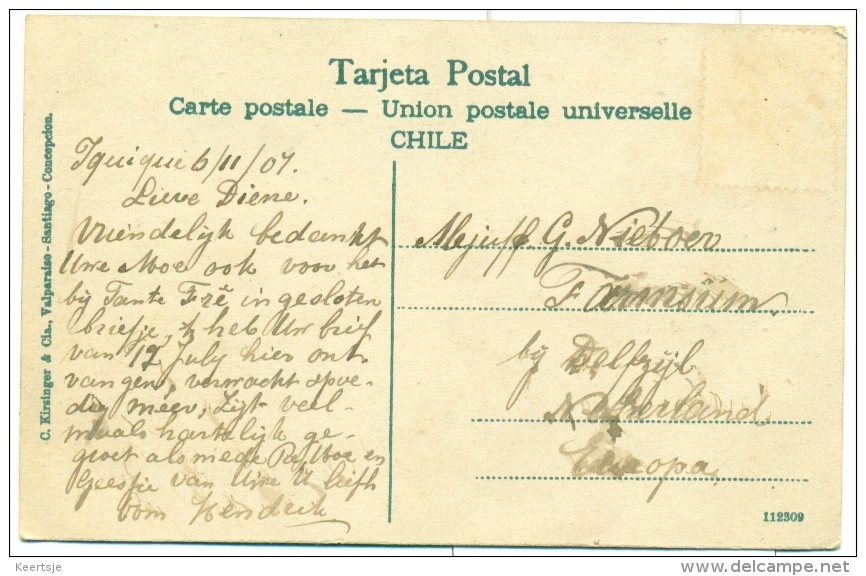 Tarjeta Postal
Carte postale — Union postale universelle
CHILE
C. Kirsinger & Cia., Valparaiso - Santiago - Concepcion.
Iquique 6/11/07.
Lieve Diene.
Vriendelijk bedankt
Uwe Moe ook voor het
bij Tante Fzē ingesloten
briefje, heb Uw brief
van 12 July hier ont-
vangen, verwacht spoe-
dig meer, Zijt veel-
maals hartelijk ge-
groet alsmede Pa, Moe en
Geesje van Uwe U liefh
bom Hendrik
Mejuff G. Nieboer
Farmsum.
bij Delfzijl
Nederland
Europa
112309
Keertsje
www.delcampe.net